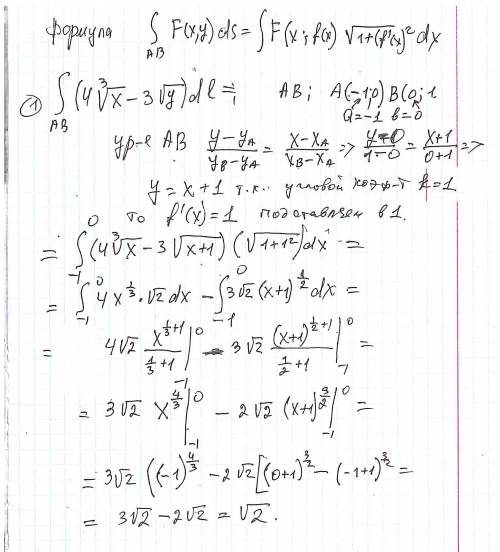 Формула ∫_AB F(x,y) ds = ∫ F(x; f(x)) √(1+(f'(x))²) dx
① ∫_AB (4∛x − 3√y) dl = AB; A(−1;0) B(0;1
a=−1 b=0
ур-е AB (y−y_A)/(y_B−y_A) = (x−x_A)/(x_B−x_A) => (y−0)/(1−0) = (x+1)/(0+1) =>
y = x+1 т.к. угловой коэф-т k=1
то f'(x)=1 подставляем в 1.
= ∫_{−1}^{0} (4∛x − 3√(x+1)) (√(1+1²)) dx =
= ∫_{−1}^{0} 4x^{1/3}·√2 dx − ∫_{−1}^{0} 3√2 (x+1)^{1/2} dx =
= 4√2 x^{1/3+1}/(1/3+1) |_{−1}^{0} − 3√2 (x+1)^{1/2+1}/(1/2+1) |_{−1}^{0} =
= 3√2 x^{4/3} |_{−1}^{0} − 2√2 (x+1)^{3/2} |_{−1}^{0} =
= 3√2 ((−1)^{4/3} − 2√2 [(0+1)^{3/2} − (−1+1)^{3/2} =
= 3√2 − 2√2 = √2.